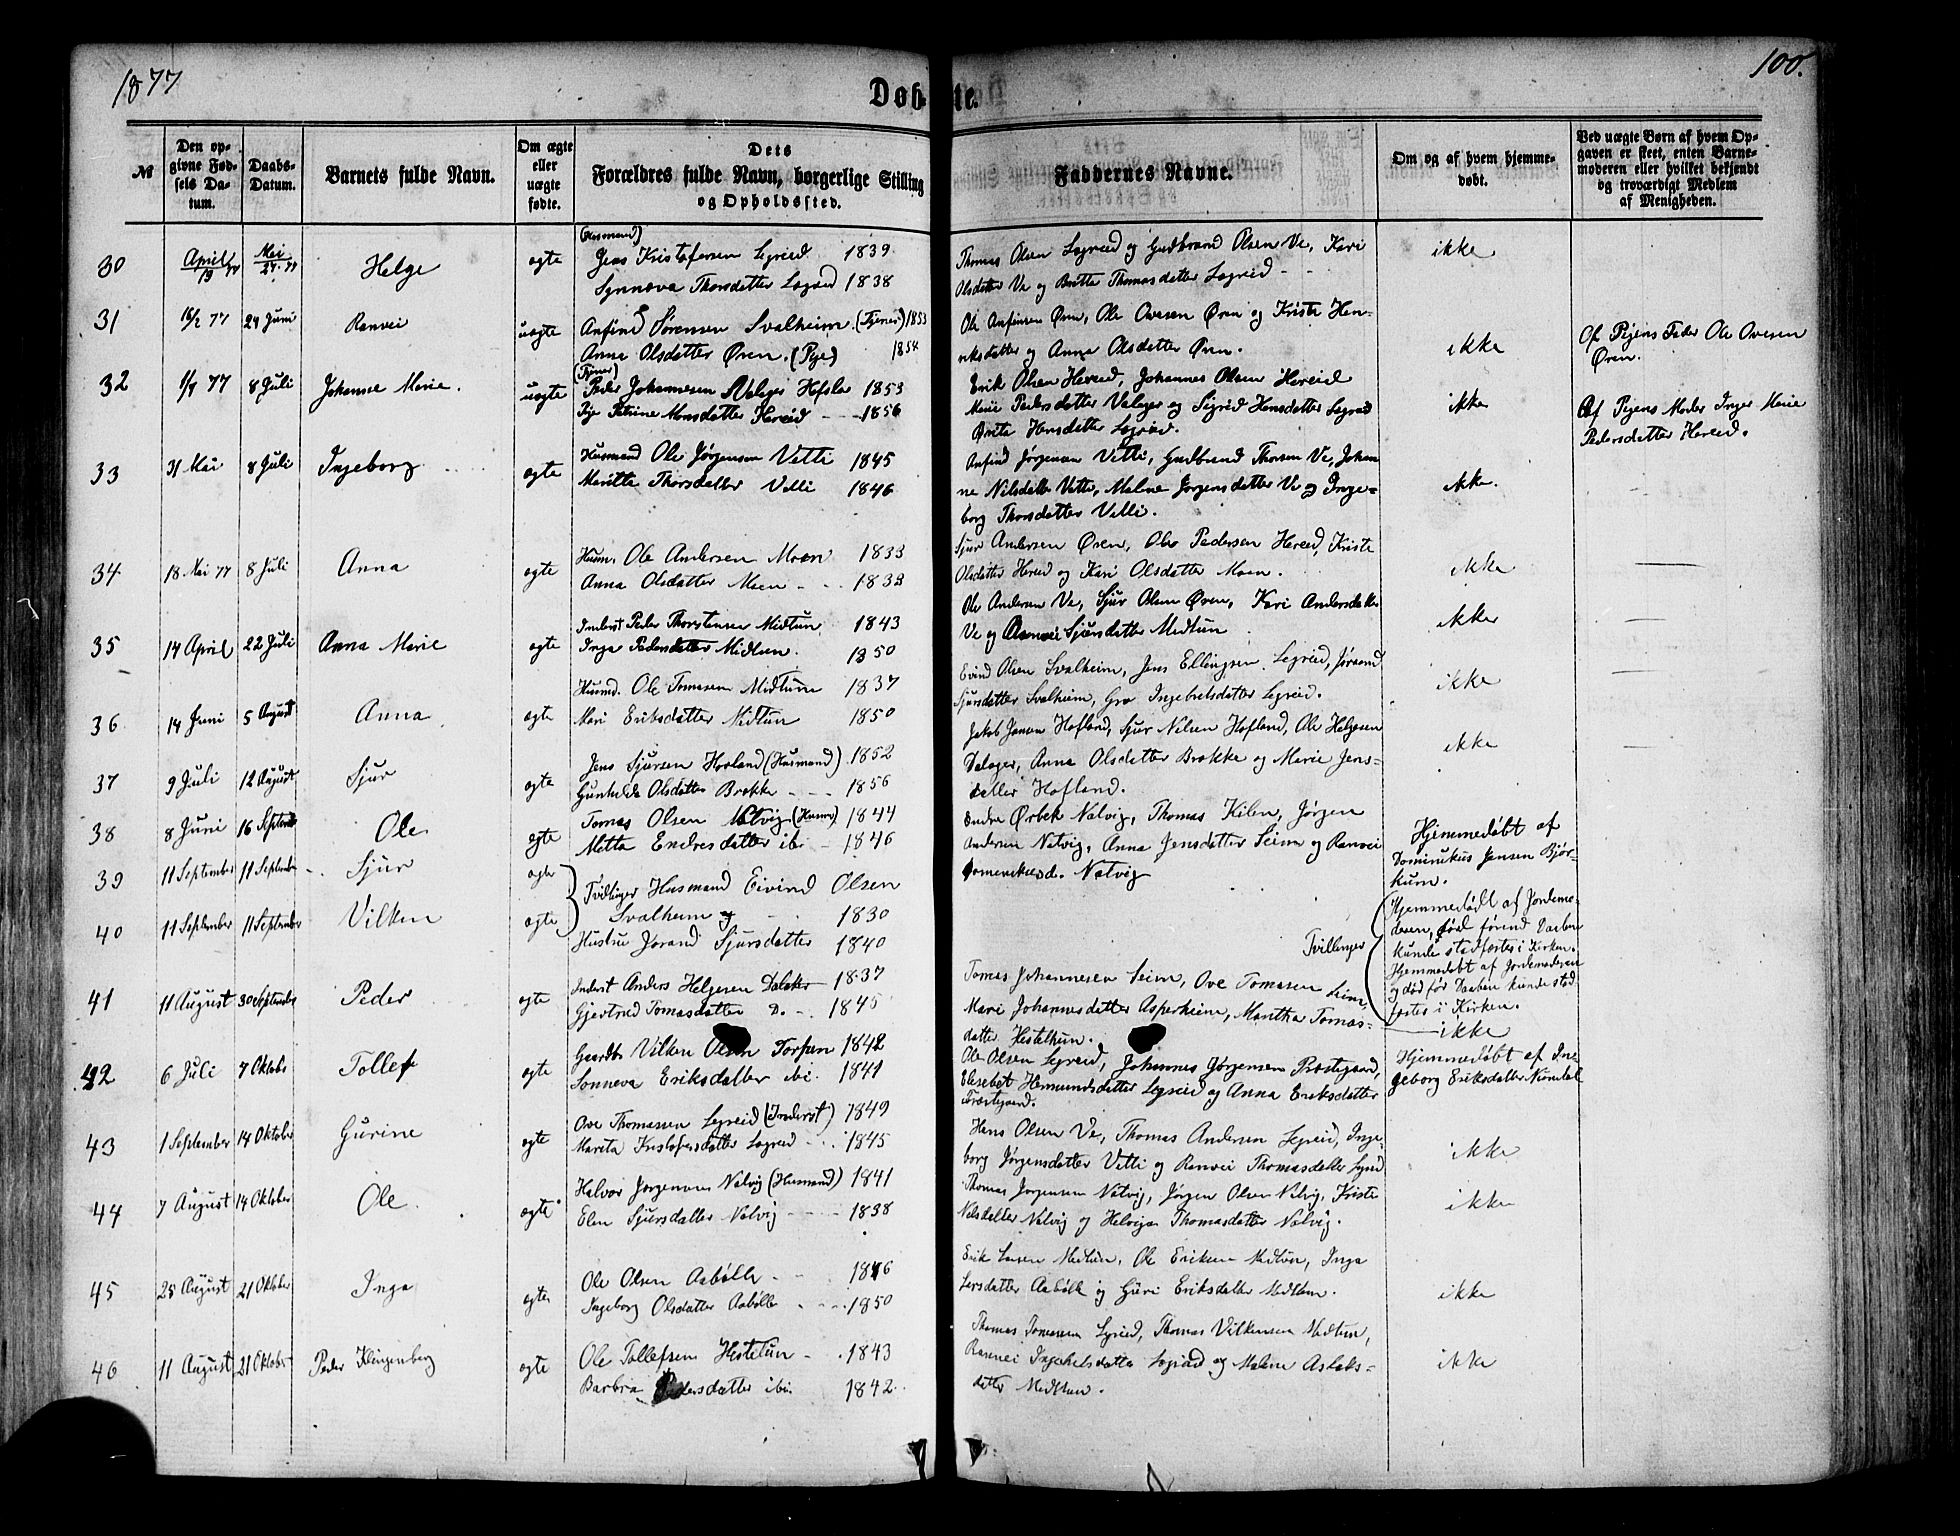 1877
100.
Døbte.
№
Den op-
givne Fød-
sels Da-
tum.
Daabs-
Datum.
Barnets fulde Navn.
Om ægte
eller
uægte
fødte.
Dets
Forældres fulde Navn, borgerlige Stilling
og Opholdssted.
Faddernes Navne.
Om og af hvem hjemme-
døbt.
Ved uægte Børn af hvem Op-
gaven er skeet, enten Barne-
moderen eller hvilket bekjendt
og troværdigt Medlem
af Menigheden.
30 April 19 77 Mai 27. 77 Helge ægte
(Husmand)
Jens Kristofersen Legreid 1839
Synneva Thorsdatter Legreid 1838
Thomas Olsen Legreid og Gudbrand Olsen Ve, Kari
Olsdatter Ve og Britta Thomasdatter Legreid
ikke
31 16/2 77 24 Juni Ranvei uægte
Anfind Sørensen Svalheim (Tjener) 1853
Anna Olsdatter Øren. (Pige) 1854
Ole Anfinsen Øren, Ole Ovesen Øren og Kriste Hen-
riksdatter og Anna Olsdatter Øren.
ikke
Af Pigens Fader Ole Ovesen
Øren.
32 1/4 77 8 Juli Johanne Marie. uægte
(Tjener)
Peder Johannesen Valager Hofslo 1853
Pige Petrine Monsdatter Hereid 1856
Erik Olsen Hereid, Johannes Olsen Hereid
Marie Pedersdatter Valager og Sigrid Hansdatter Legreid
Brita Hansdatter Legreid.
ikke
Af Pigens Moder Inger Marie
Pedersdatter Hereid.
33 31 Mai 8 Juli Ingeborg ægte
Husmand Ole Jørgensen Vetti 1845
Maritta Thorsdatter Vetti 1846
Anfind Jørgensen Vetti, Gudbrand Thorsen Ve, Johan
ne Nilsdatter Vetti, Malene Jørgensdatter Ve og Inge-
borg Thorsdatter Vetti.
ikke.
34 18 Mai 77 8 Juli Anna ægte
Husm. Ole Andersen Moen 1833
Anna Olsdatter Moen 1833
Sjur Andersen Øren, Ole Pedersen Hereid, Kriste
Olsdatter Hereid og Kari Olsdatter Moen.
ikke
35 14 April 22 Juli Anna Marie ægte
Inderst Peder Thorstensen Midtun 1843
Inga Pedersdatter Midtun. 1850
Ole Andersen Ve, Sjur Olsen Øren, Kari Andersdatter
Ve og Ranvei Sjursdatter Midtun
ikke
36 14 Juni 5 August Anna ægte
Husmd. Ole Tomasen Midtun 1837
Mari Eriksdatter Midtun 1850
Eivind Olsen Svalheim, Jens Ellingsen Legreid, Jorand
Sjursdatter Svalheim, Gro Ingebretsdatter Legreid.
ikke
37 9 Juli 12 August Sjur ægte
Jens Sjursen Hovland (Husmand) 1852
Gunhilda Olsdatter Brække 1856
Jakob Jensen Hofland, Sjur Nilsen Hofland, Ole Helgesen
Dalager, Anna Olsdatter Brække og Marie Jens-
datter Hofland.
ikke
38 8 Juni 16 Septemb Ole ægte
Tomas Olsen Natvig (Husm) 1844
Metta Endresdatter ibi 1846
Endre Ørbek Natvig, Thomas Kilen, Jørgen
Andersen Natvig, Anna Jensdatter Seim og Ranvei
Domenikusd. Natvig
Hjemmedøbt af
Dominikus Jensen Bjør-
kum.
39 11 September 11 September Sjur ægte
40 11 September 11 September Vilken ægte
Tvillinger Husmand Eivind Olsen
Svalheim og 1830
Hustru Jorand Sjursdatter 1840
Tvillinger
Hjemmedøbt af Jordemo-
deren, død førend Daaben
kunde stadfæstes i Kirken.
Hjemmedøbt af Jordemoderen
og død før Daaben kunde stad
fæstes i Kirken.
41 11 August 30 September Peder ægte
Inderst Anders Helgesen Dalaker 1837
Gjertrud Tomasdatter D. 1845
Tomas Johannesen Seim, Ove Tomasen Seim,
Mari Johannesdatter Asperheim, Martha Tomas-
datter Hestethun.
ikke
42 6 Juli 7 Oktobr Tollef ægte
Gaardbr Vilken Olsen Torpen 1842
Sønneva Eriksdatter ibi. 1841
Ole Olsen Legreid, Johannes Jørgensen Prestegaard,
Elsebet Hermundsdatter Legreid og Anna Eriksdatter
Prestegaard.
Hjemmedøbt af In-
geborg Eriksdatter Nundal
43 1 September 14 Oktober Gurine ægte
Ove Thomassen Legreid (Inderst) 1849
Marita Kristofersdatter Legreid 1845
Hans Olsen Ve, Thomas Andersen Legreid, Inge-
borg Jørgensdatter Vetti og Ranvei Thomasdatter Legreid
ikke
44 7 August 14 Oktober Ole ægte
Halvor Jørgensen Natvig (Husmand) 1841
Elen Sjursdatter Natvig 1838
Thomas Jørgensen Natvig, Jørgen Olsen Natvig, Kriste
Nilsdatter Natvig og Helvig Thomasdatter Natvig.
ikke
45 25 August 21 Oktober Inga ægte
Ole Olsen Aabølle 1846
Ingeborg Olsdatter Aabølle 1850
Erik Larsen Midtun, Ole Eriksen Midtun, Inga
Larsdatter Aabølle og Guri Eriksdatter Midtun.
ikke
46 11 August 21 Oktober Peder Klingenberg ægte
Ole Tollefsen Hestetun 1843
Barbra Pedersdatter ibi. 1842
Thomas Tomasen Legreid, Thomas Vilkensen Midtun,
Ranvei Ingebretsdatter Legreid og Malene Aslaks-
datter Midtun.
ikke